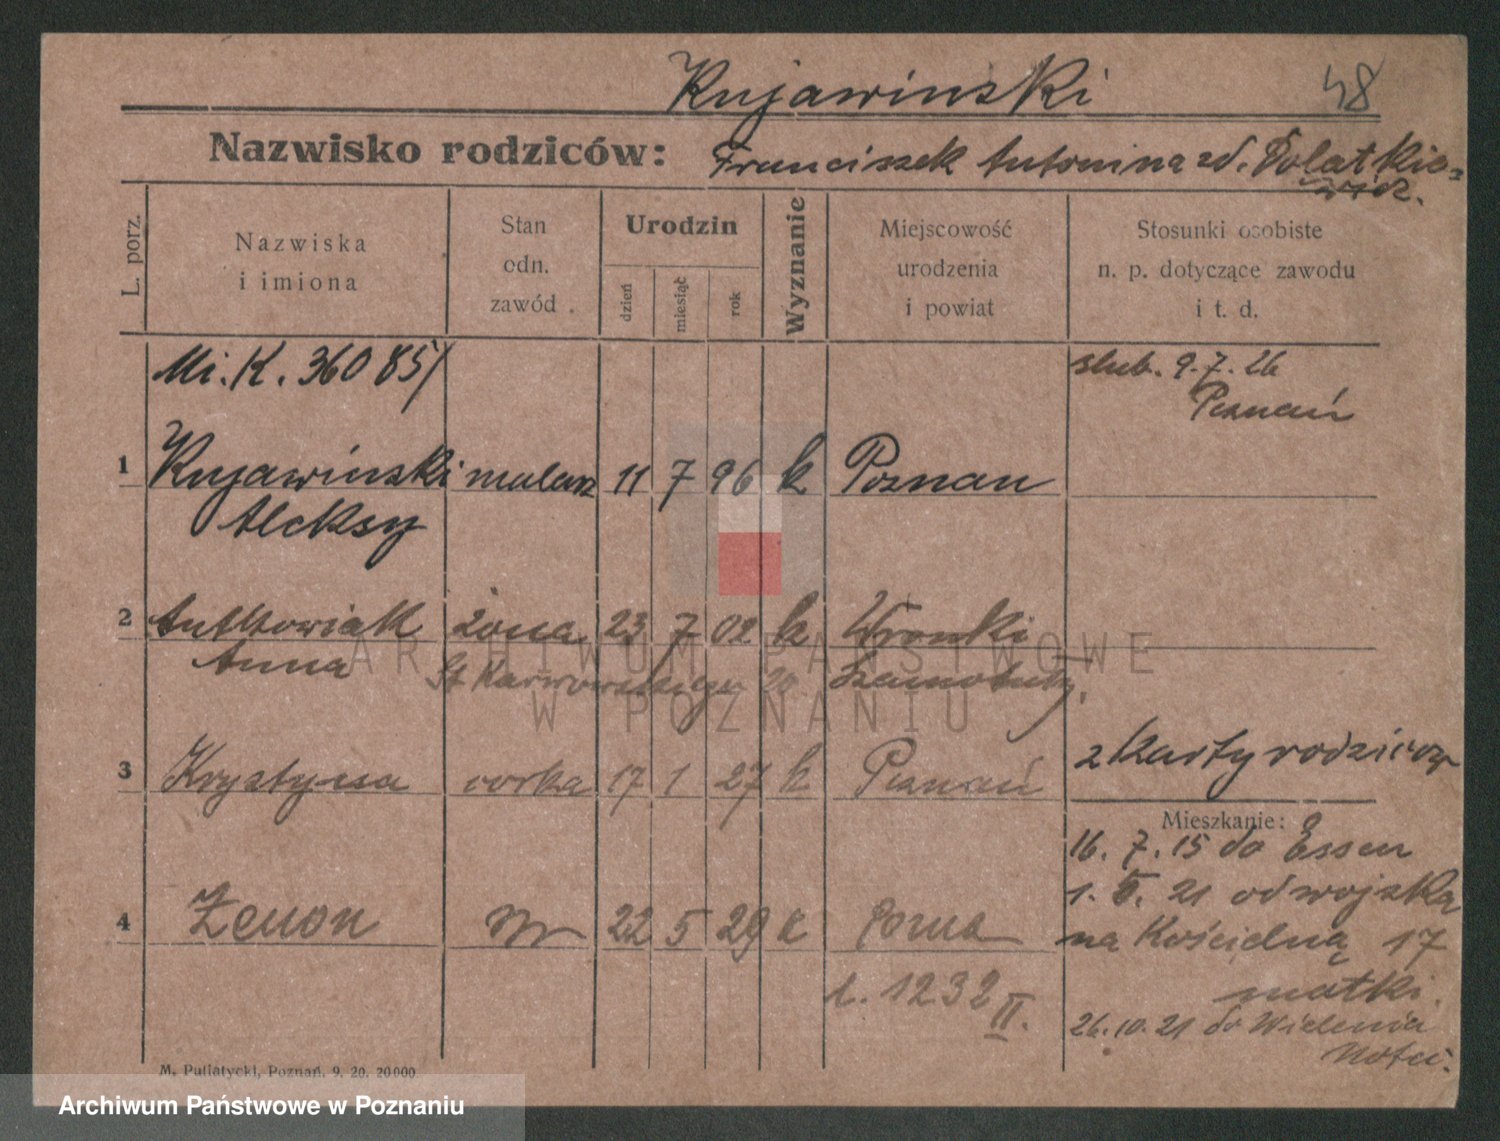 Kujawinski
48
Nazwisko rodziców: Franciszek Antonina zd. Połatkie=
wicz.
L. porz.
Nazwiska
i imiona
Stan
odn.
zawód .
Urodzin
dzień
miesiąc
rok
Wyznanie
Miejscowość
urodzenia
i powiat
Stosunki osobiste
n. p. dotyczące zawodu
i t. d.
Mi. K. 36085/
slub. 9. 7. 26
Poznań
1 Kujawinski malarz 11 7 96 k Poznan
Aleksy
2 Antkowiak żona 23 7 02 k Wronki
Anna
Szamotuły.
3 Krystyna corka 17 1 27 k Poznań
z Karty rodziców
Mieszkanie:
16. 7. 15 do Essen
1. 21 od wojska
4 Zenon 22 5 29 k
na Kościelną 17
matki.
1232 II.
26. 10. 21 do Wielenia
Noteć.
M. Putiatycki, Poznań, 9. 20. 20000.
ARCHIWUM PAŃSTWOWE
W POZNANIU
Archiwum Państwowe w Poznaniu